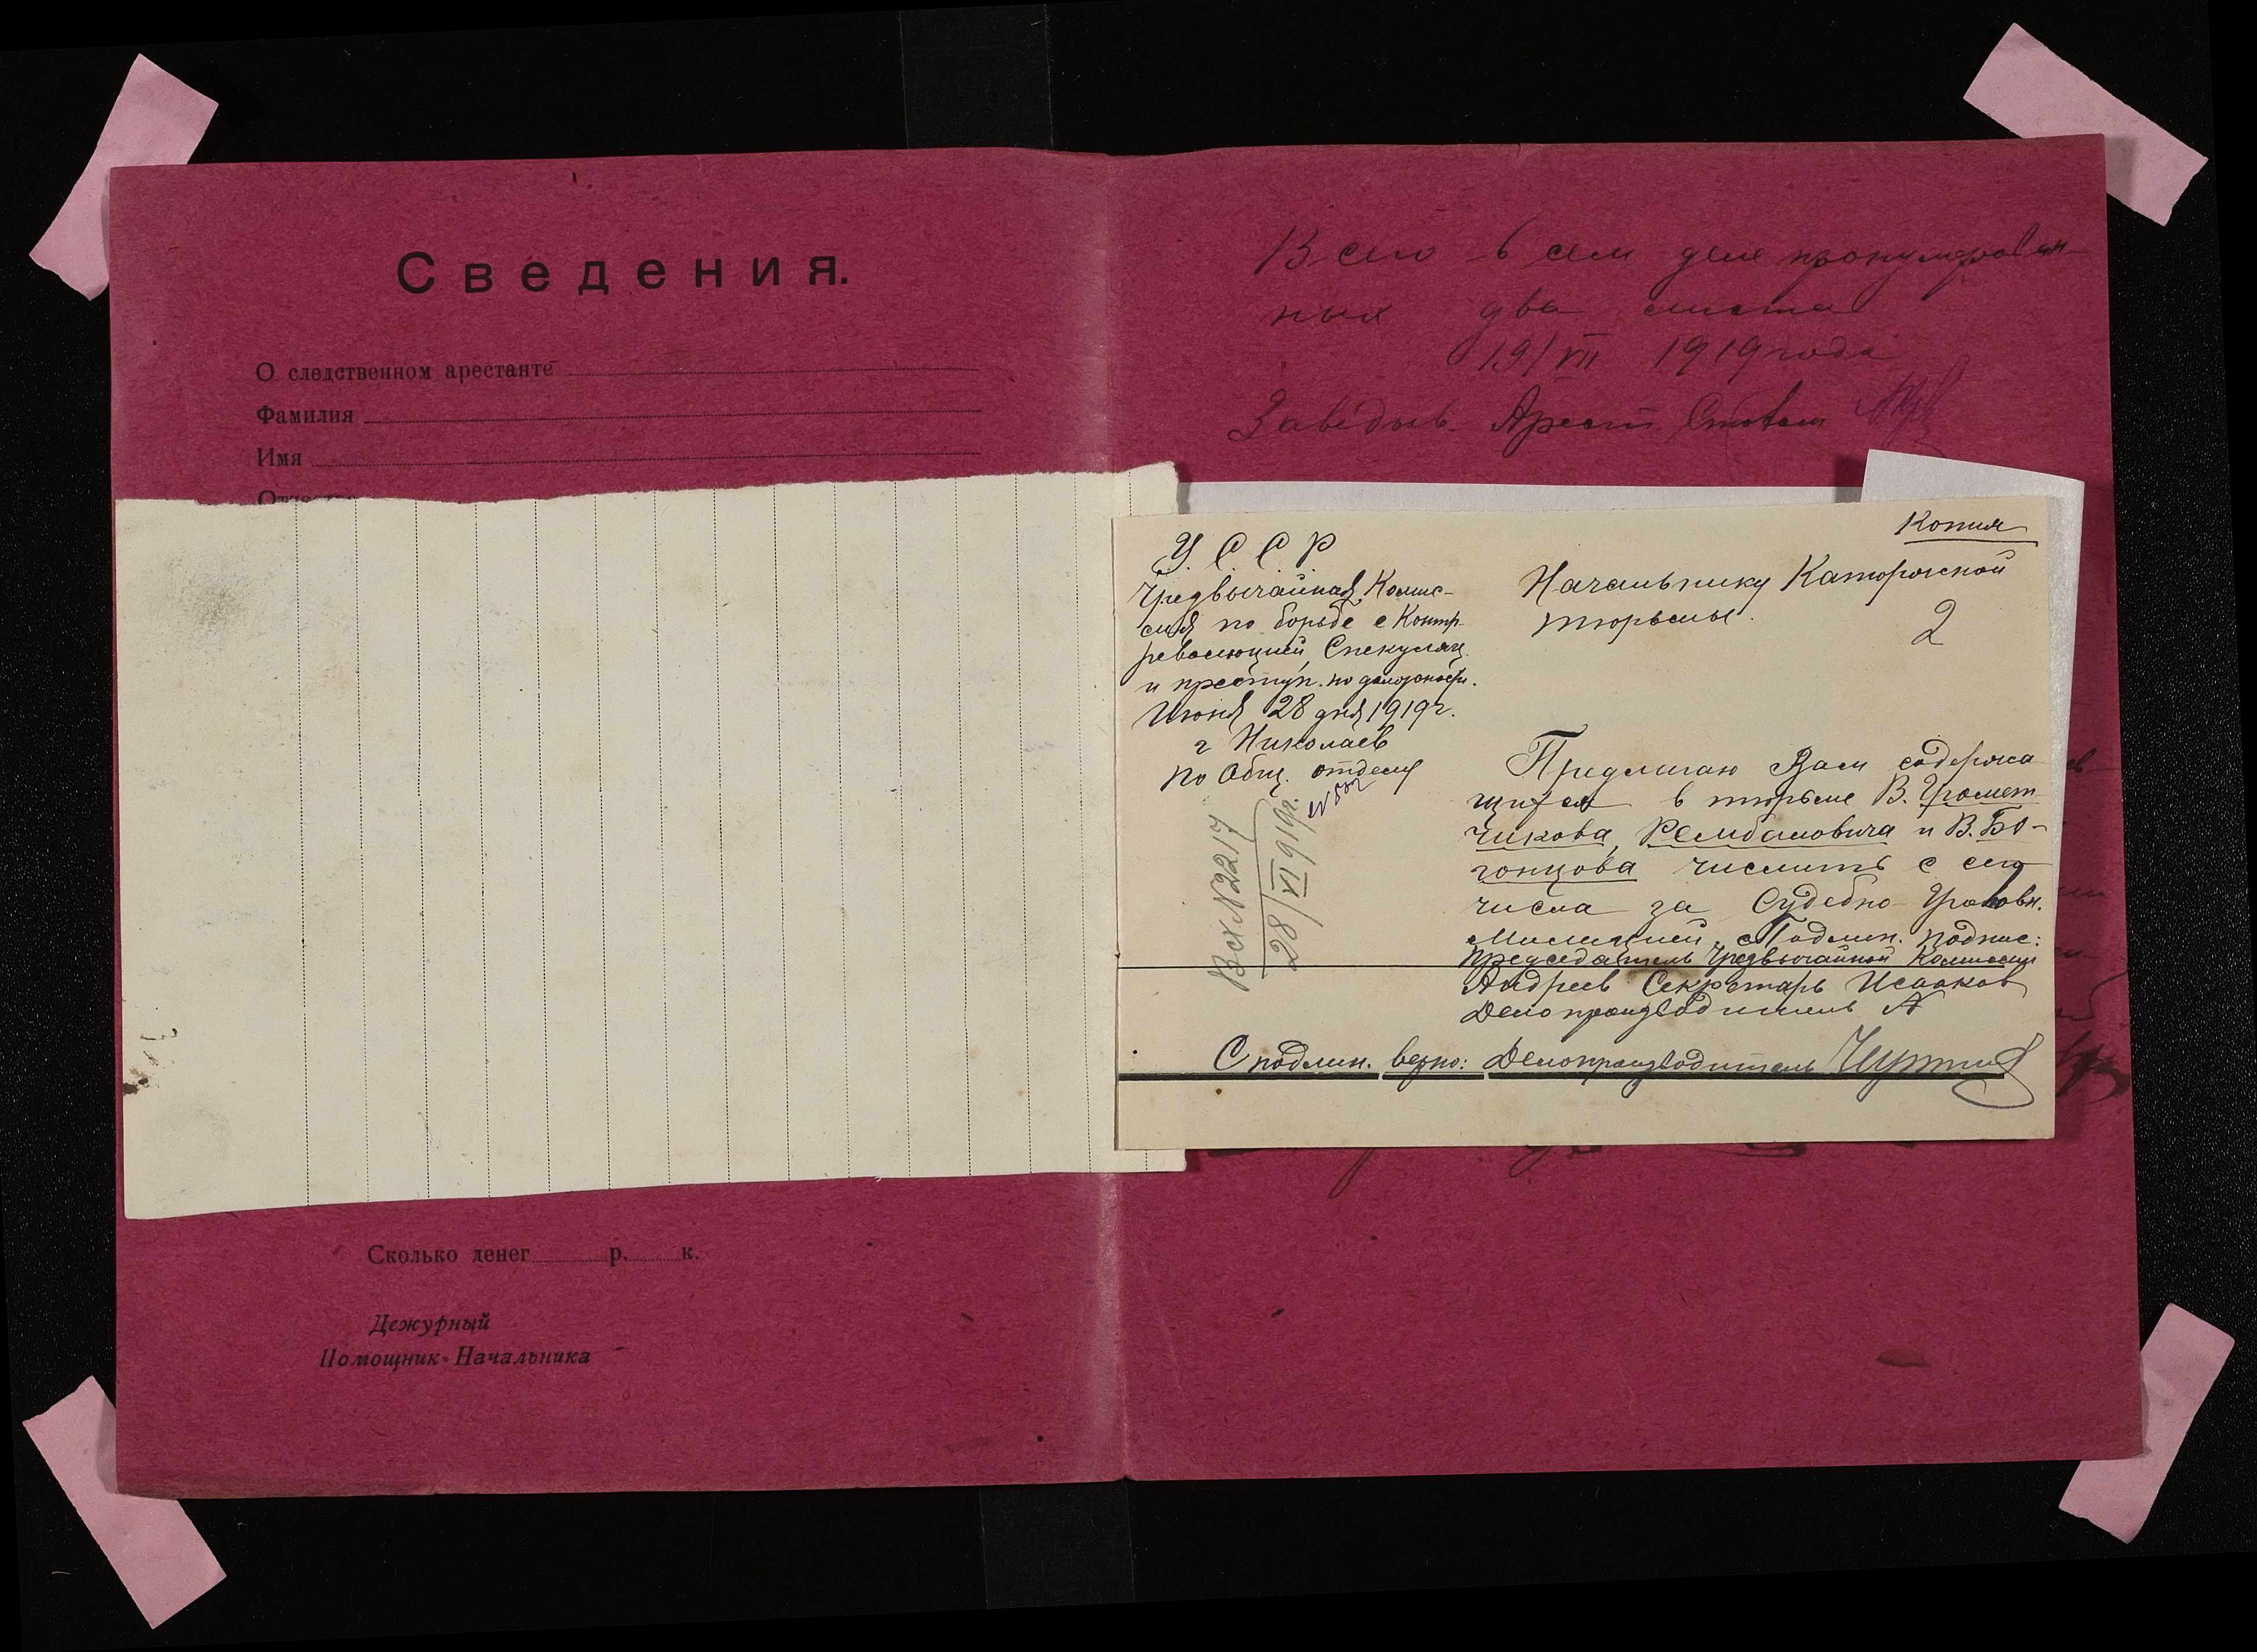 Сведения.
О следственном арестанте
Фамилия
Имя
Сколько денег р. к.
Дежурный
Помощник Начальника
Всего в сем деле пронумерован-
ных два листа
19/VII 1919 года
Заведыв. Арест. Столом
Копия
У. С. С. Р.
Чрезвычайная Комис-
сия по борьбе с Контр-
революцией, Спекуляц.
и преступ. по должност.
Июня 28 дня 1919 г.
г Николаев
По Общ. отделу
Вх. № 2217
28/VI 919 г.
Начальнику Каторжской
тюрьмы.
2
Предлагаю Вам содержа
щихся в тюрьме В. Громет
чикова, Рембаловича и В. Бо-
гонцова числить с сего
числа за Судебно-Уголовн.
Милицией. Подлин. подпис:
Председатель Чрезвычайной Комиссии
Андреев Секретарь Исааков
Делопроизводитель А
С подлин. верно: Делопроизводитель